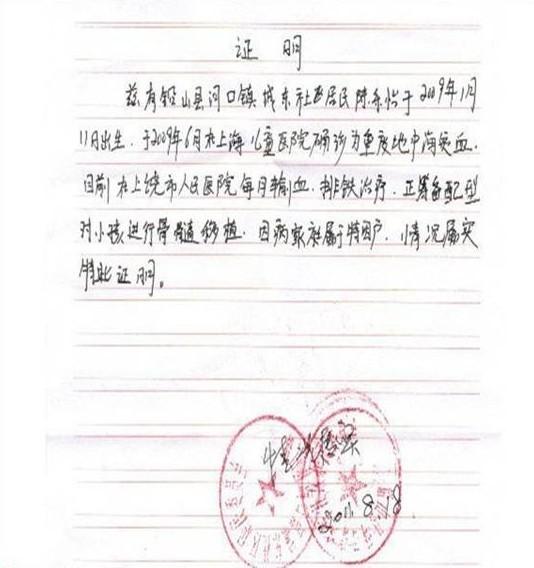 证明
兹有铅山县河口镇城东社区居民陈乐怡于2009年1月
11日出生。于2009年6月在上海儿童医院确诊为重度地中海贫血。
目前在上饶市人民医院每月输血、排铁治疗。正筹备配型
对小孩进行骨髓移植。因病家庭属于特困户。情况属实
特此证明。
情况属实
2011.8.18